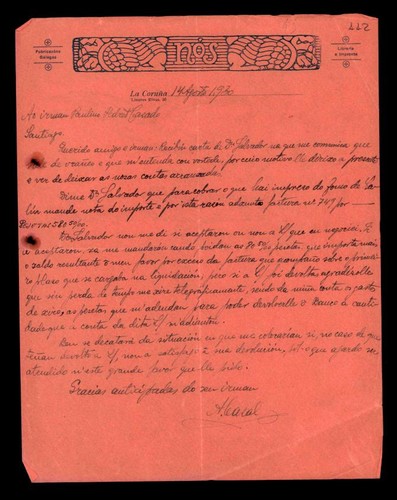 112
Publicacións Galegas
NÓS
Librería e Imprenta
La Coruña 14 Agosto 1930
No irman Paulino Pedret Casado
Santiago.
Querido amigo e irman: Recibin carta de Dn Salvador na que me comunica que
de e que m'entenda con vostede, por cuio motivo lle dirixo a presente
a ver de deixar as nosas contas
Dime Dn Salvador que para cobrar o que hai impreso do
mande nota do importe e por esta razón adxunta factura nº 749 por
pesetas 580
Dn Salvador non me di se aceptaron ou non a
aceptaron, xa me mandarán cando pesetas que importa mais
o saldo resultante a meu favor por exceso da factura que acompaño sobre o primeiro
plazo que se cargaba na liquidación, pero si a foi devolta agradeceríalle
que sin perda de tempo me xire telegraficamente, sendo da miña conta os gastos
de xiro, as pesetas que m'adeudan para poder devolverlle ó Banco a canti-
dade que a conta da dita m'adiantou.
Ben se decatará da situación en que me colocarían si, no caso de que
teñan devolto a non a satisfago a sua devolución, por o que agardo ser
atendido n'este grande favor que lle pido.
Gracias antixipadas do seu irman
A. Casal